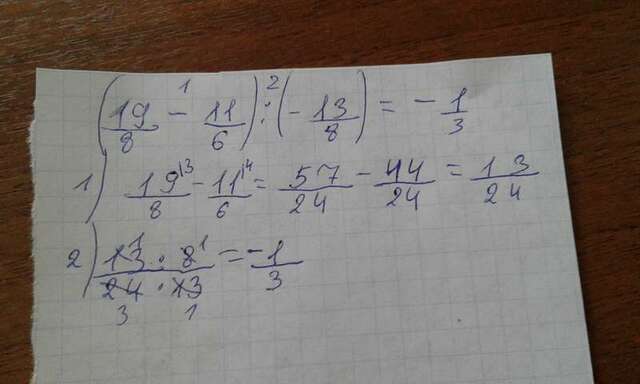 (19/8 -¹ 11/6) :² (- 13/8) = - 1/3
1) 19/8^{|3} - 11/6^{|4} = 57/24 - 44/24 = 13/24
2) 13¹ · 8¹ / 24₃ · 13₁ = - 1/3